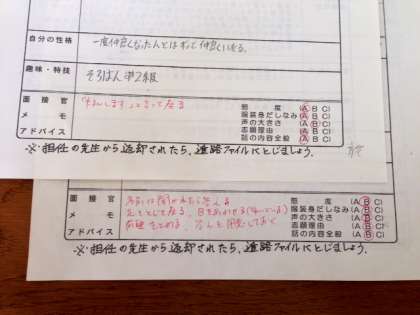 自分の性格
一度仲良くなった人とはずって仲良くいる。
趣味・特技
そろばん準2級
面接官
メモ
アドバイス
「失礼します」と言って座る
態度 (A B C)
服装身だしなみ (A B C)
声の大きさ (A B C)
志願理由 (A B C)
話の内容全般 (A B C)
※担任の先生から返却されたら、進路ファイルにとじましょう。
面接官
メモ
アドバイス
聞かれたら答える
座る
態度 (A B C)
服装身だしなみ (A B C)
声の大きさ (A B C)
志願理由 (A B C)
話の内容全般 (A B C)
※担任の先生から返却されたら、進路ファイルにとじましょう。